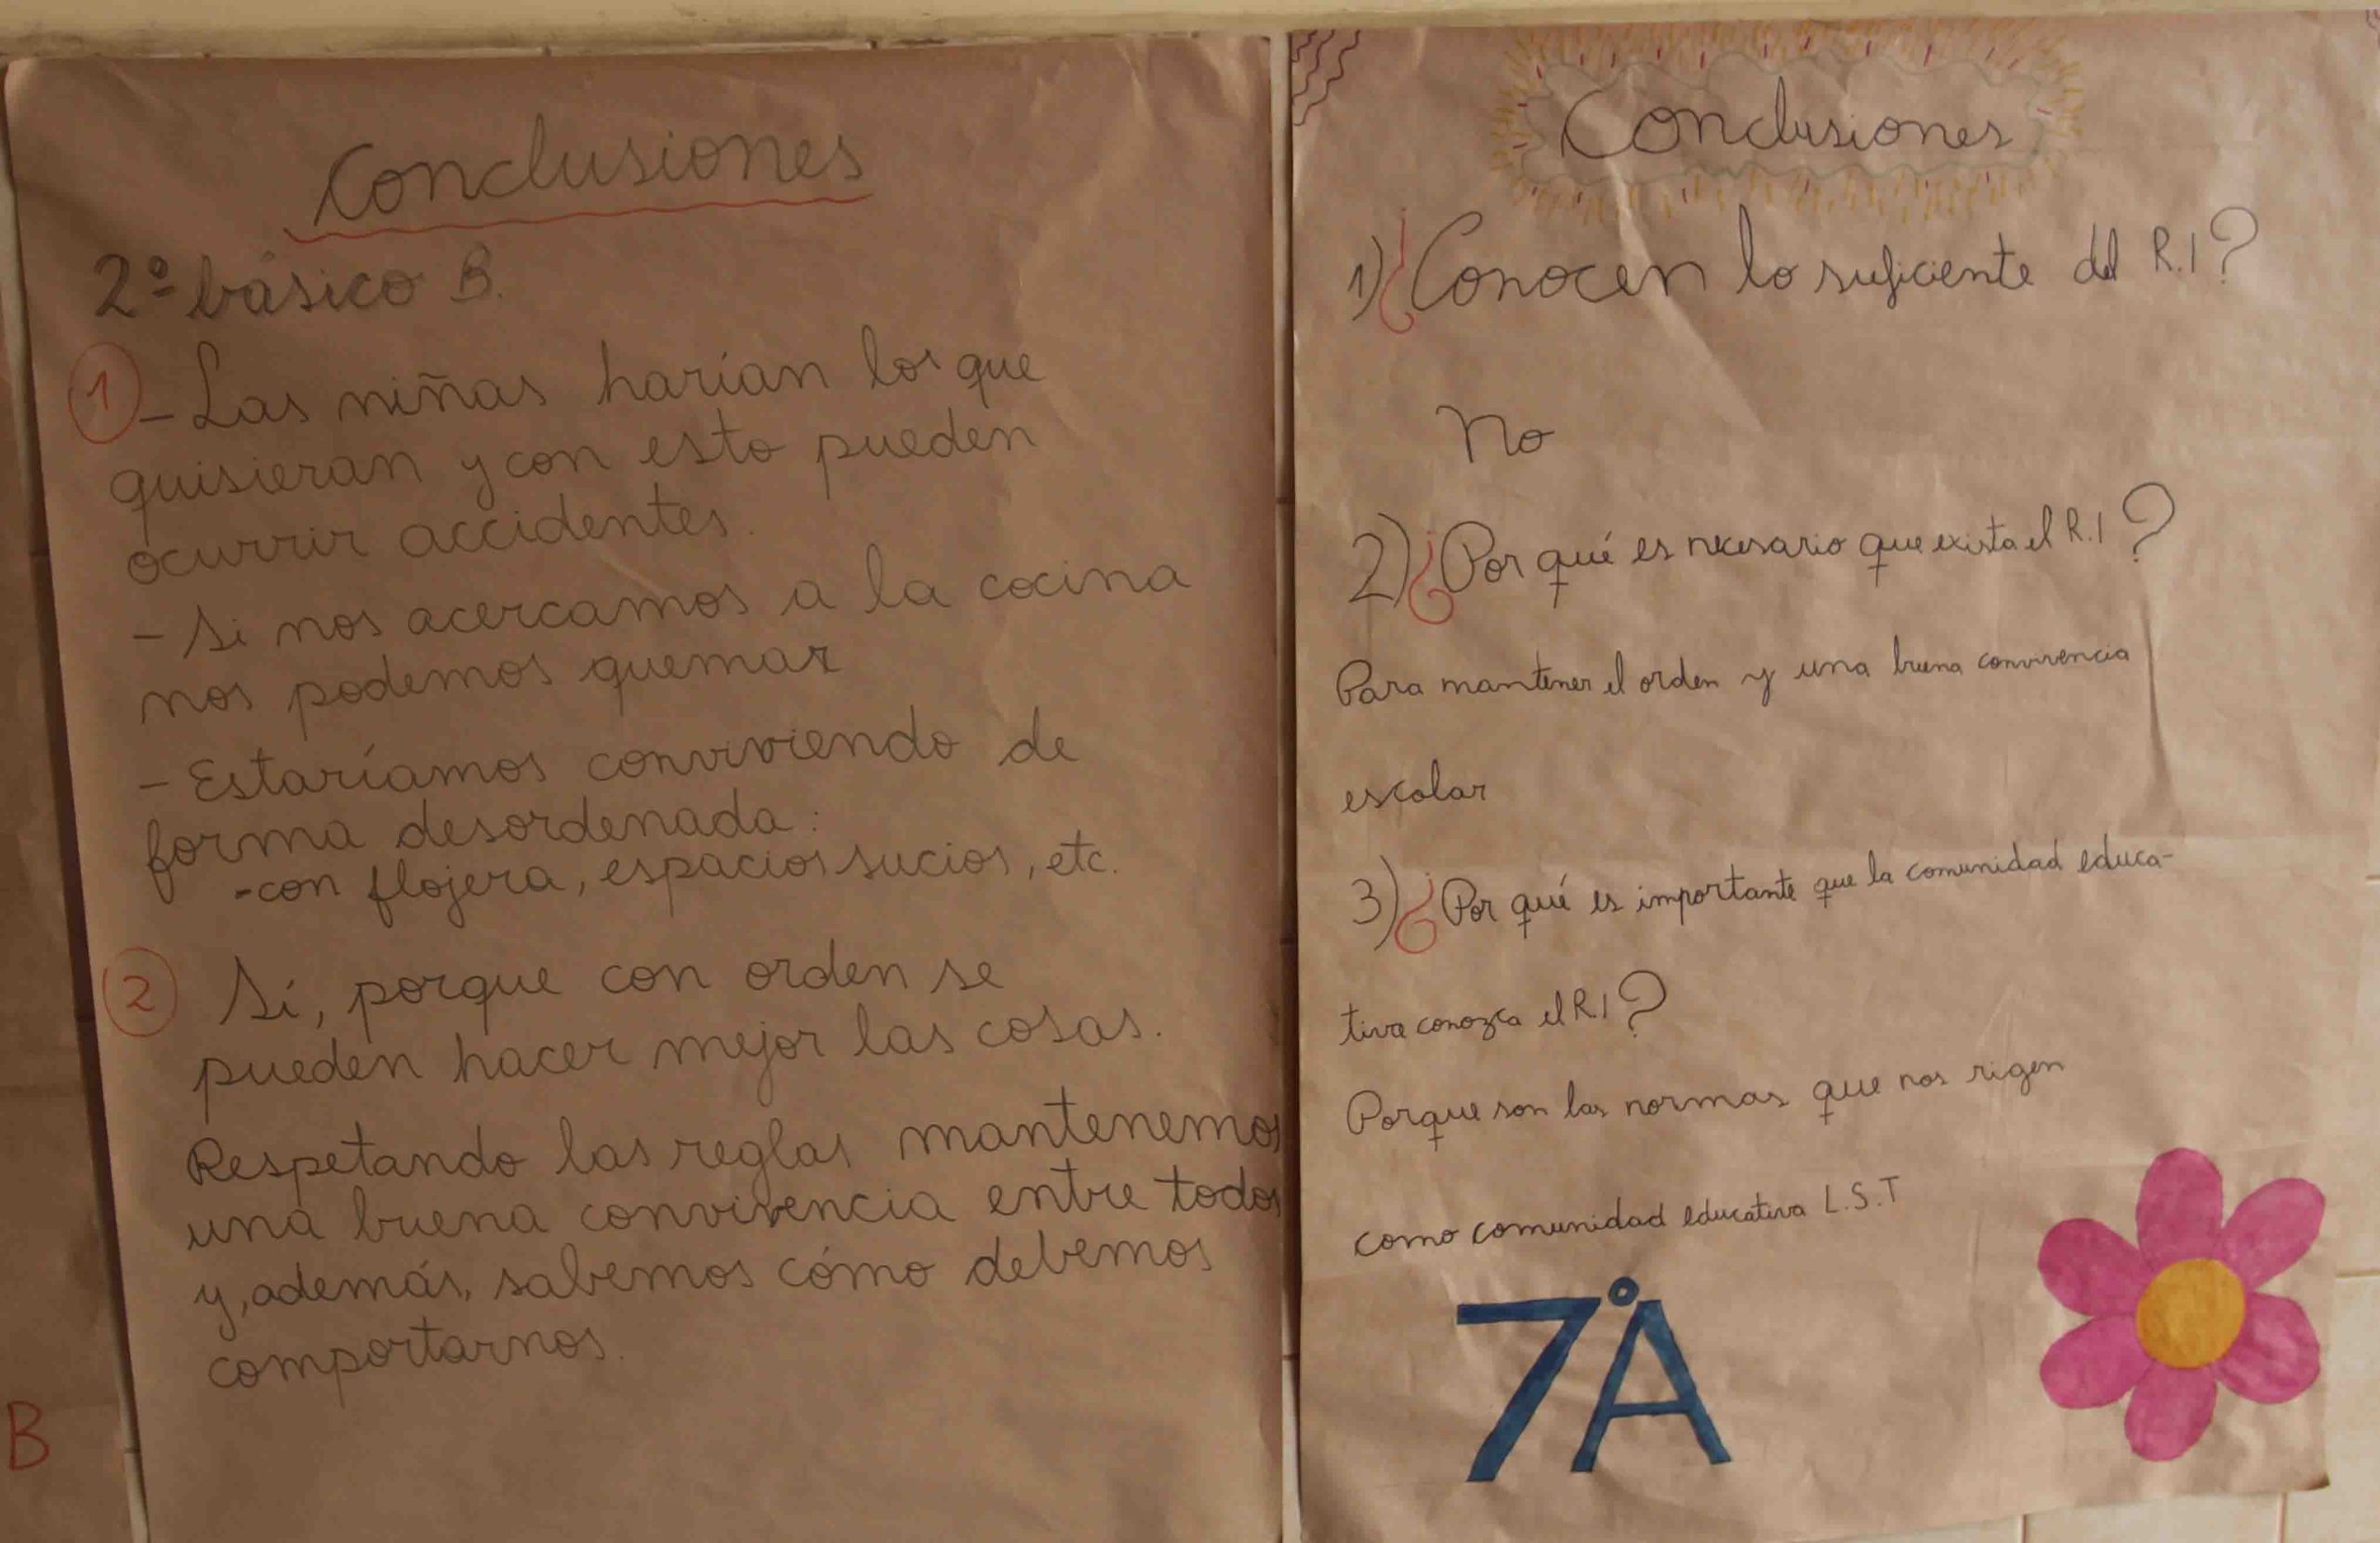 Conclusiones
2º básico B.
1 - Las niñas harían los que
quisieran y con esto pueden
ocurrir accidentes.
- Si nos acercamos a la cocina
nos podemos quemar
- Estaríamos conviviendo de
forma desordenada:
-con flojera, espacios sucios, etc.
2 Sí, porque con orden se
pueden hacer mejor las cosas.
Respetando las reglas mantenemos
una buena convivencia entre todos
y, además, sabemos cómo debemos
comportarnos.
B
Conclusiones
1) ¿Conocen lo suficiente del R.I?
No
2) ¿Por qué es necesario que exista el R.I?
Para mantener el orden y una buena convivencia
escolar
3) ¿Por qué es importante que la comunidad educa-
tiva conozca el R.I?
Porque son las normas que nos rigen
como comunidad educativa L.S.T
7°A